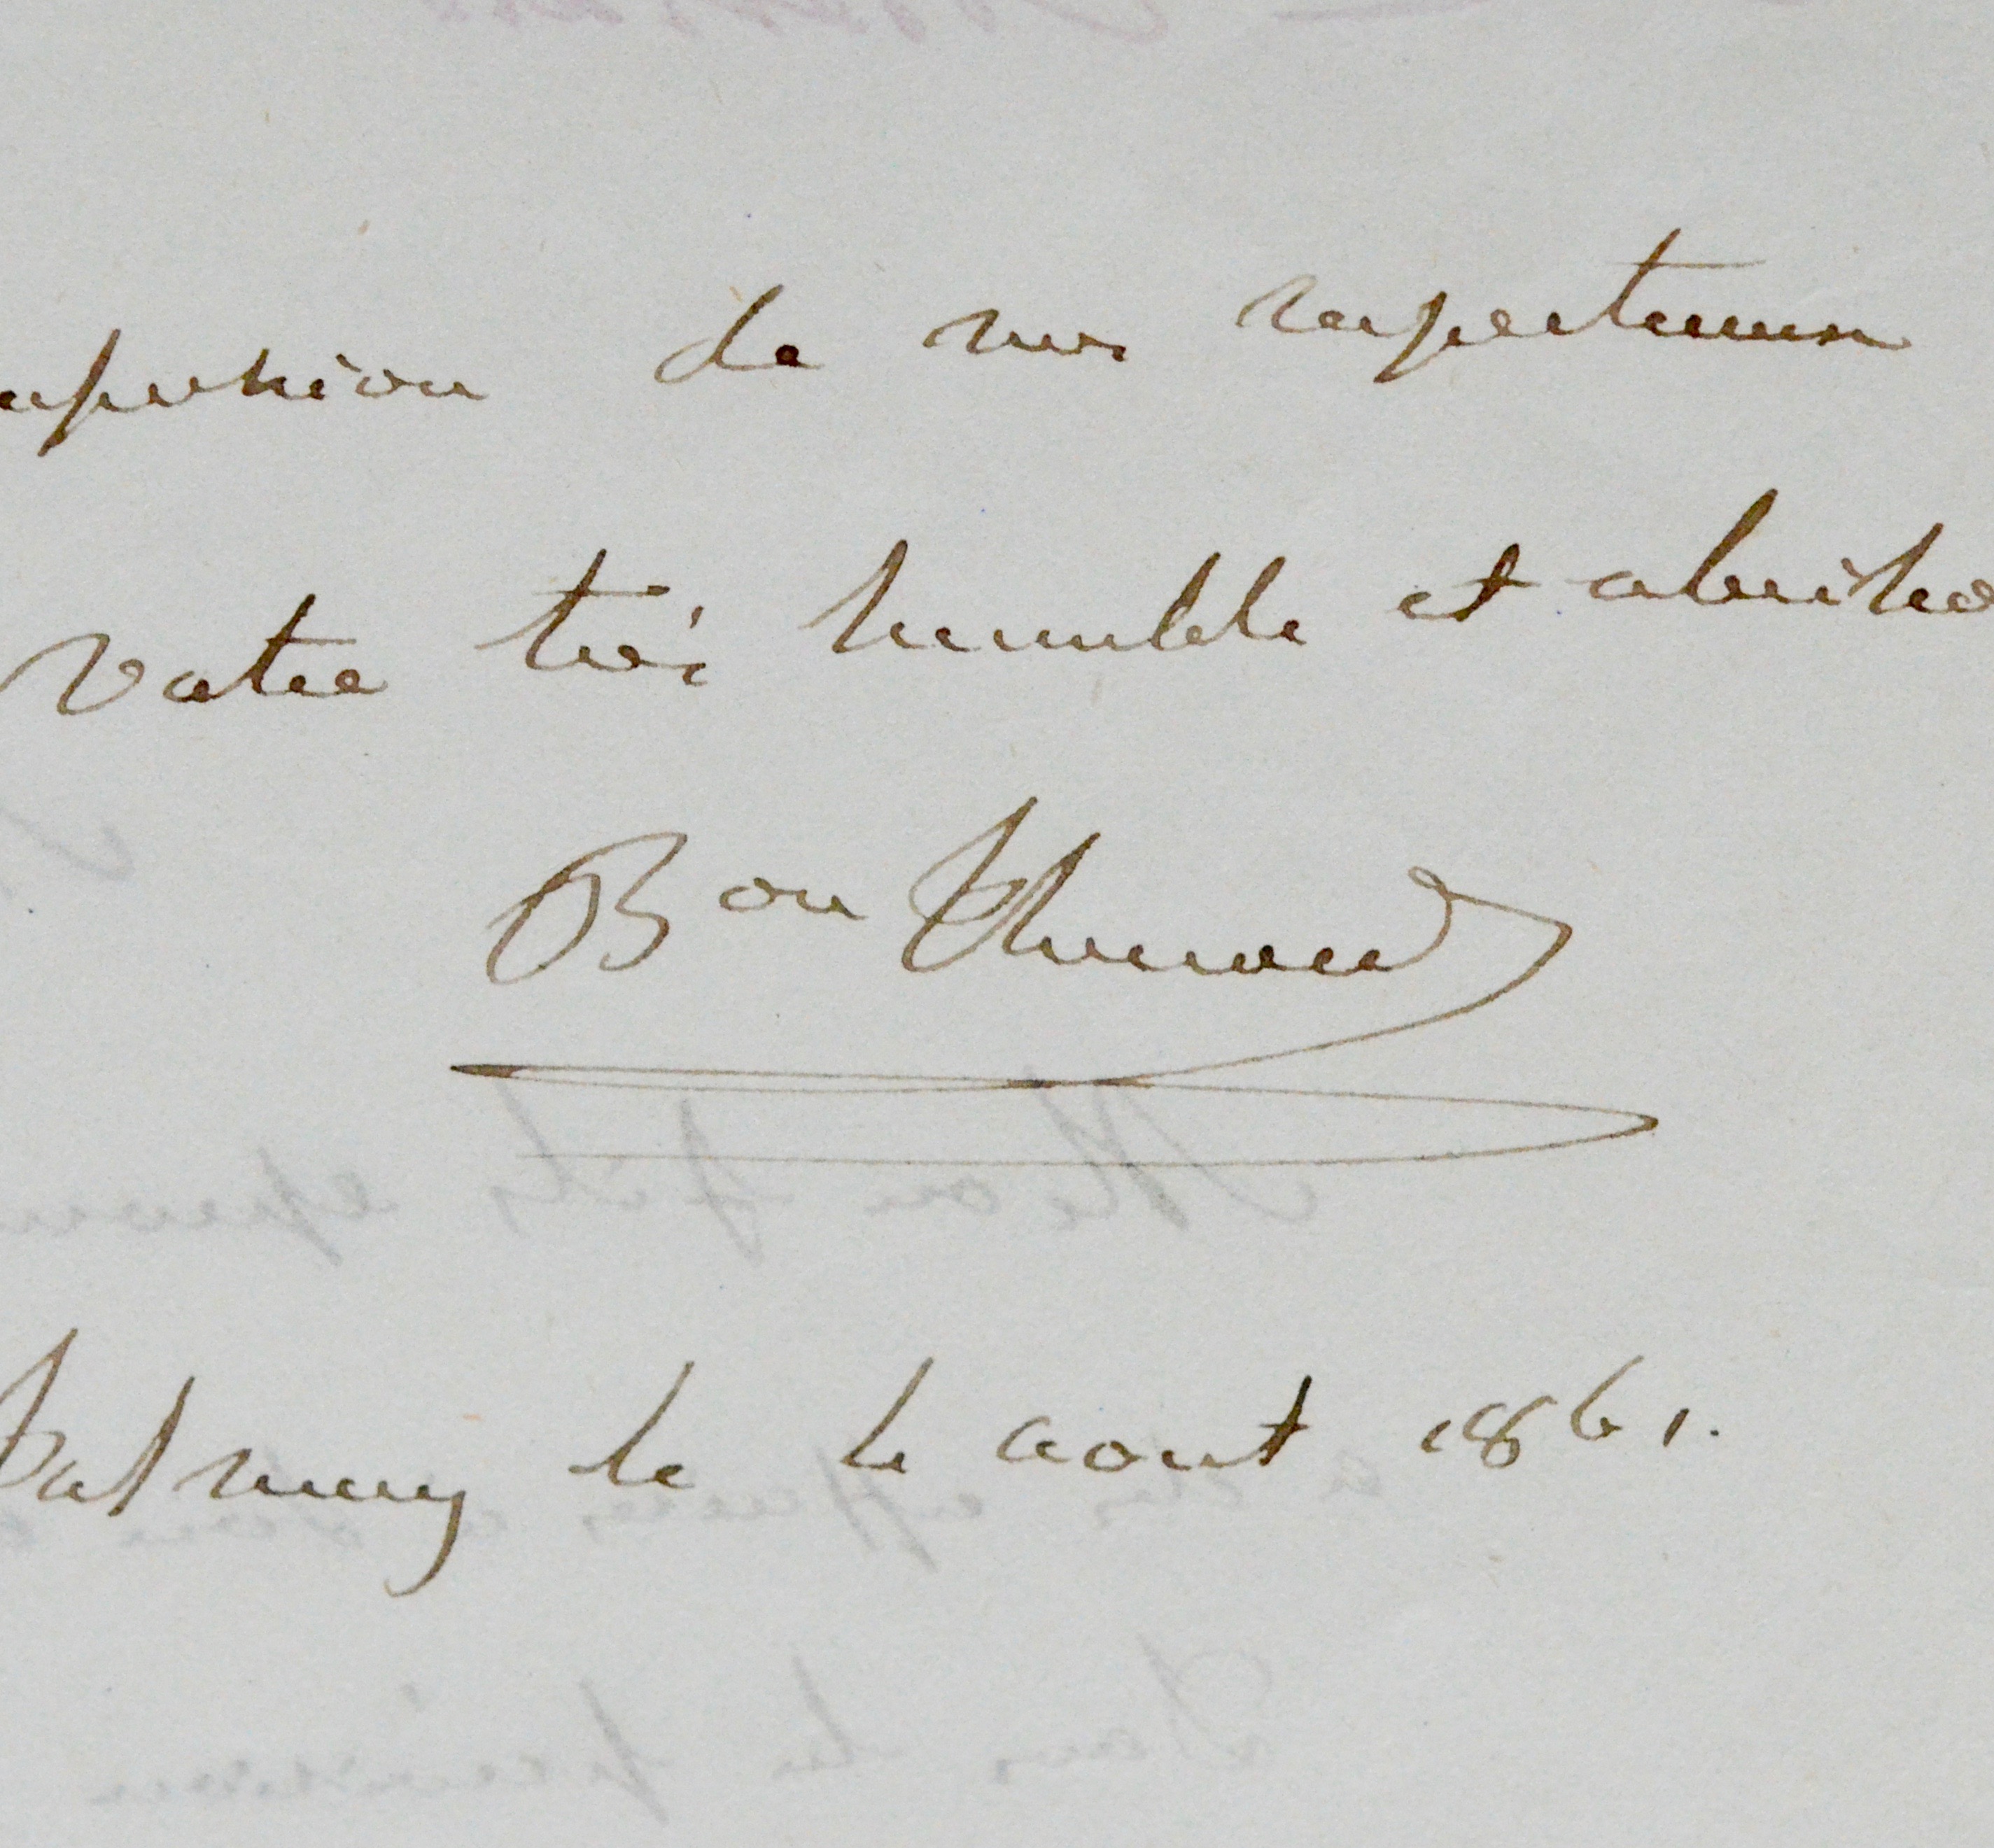 expression de mes respectueux
Votre très humble et obeissa
Bon Thenard
Talmay le 6 aout 1861.